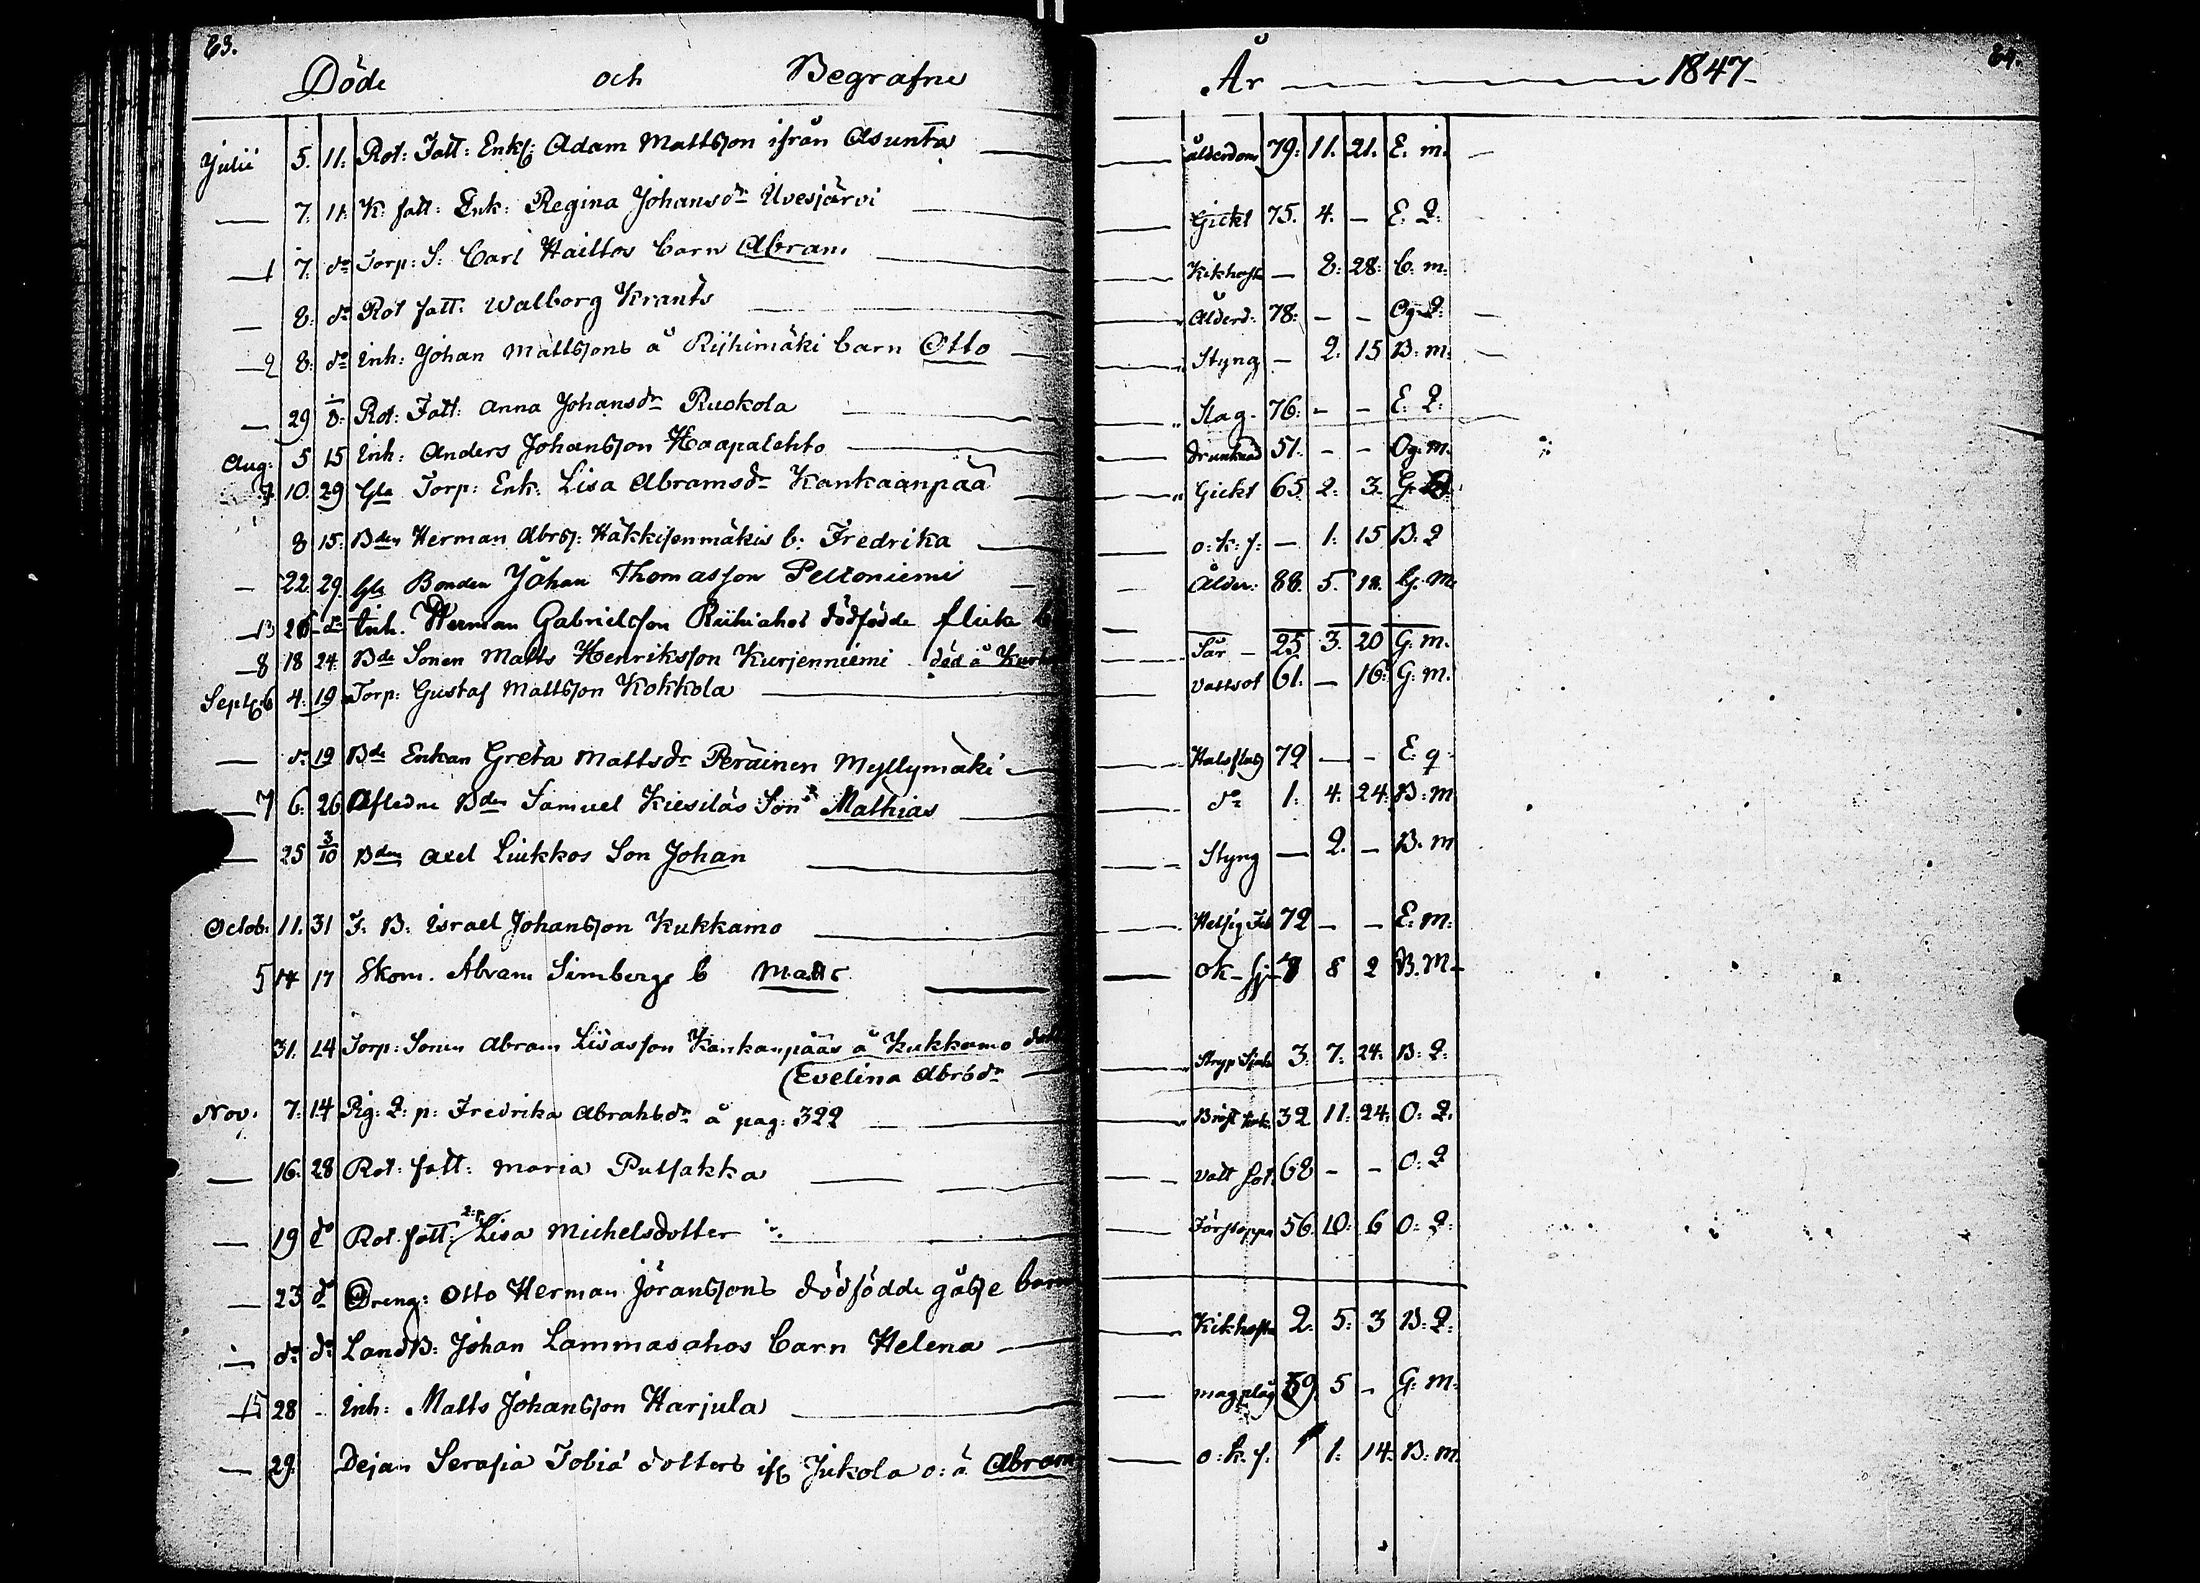 63.
Döde och Begrafne
År 1847
64.
Julii 5. 11. Rot: Fatt: Enkl: Adam Mattsson ifrån Asunta — ålderdom 79. 11. 21. E. m.
— 7. 11. K. fatt: Enk: Regina Johansdr Uvesjärvi — Gickt 75. 4. — E. Q.
— 1 7. do Torp: S: Carl Hailtos barn Abram — Kikhosta — 2. 28. b. m.
— 8. do Rot fatt: Walborg Krants — Ålderd: 78. — — Og. Q.
— 2 8. do Inh: Johan Mattssons å Riihimäki barn Otto — Styng — 2. 15 B. m.
— 29 8. Rot: Fatt: Anna Johansdr Ruokola — Slag. 76. — — E. Q.
Aug: 5 15 Inh: Anders Johansson Haapalehto — drunknad 51. — — Og. m.
7 10. 29 Gla Torp: Enk: Lisa Abramsdr Kankaanpää — Gickt 65. 2. 3. G.
8 15. Bden Herman Abrss: Häkkisenmäkis b: Fredrika — o: k: s: — 1. 15 B. Q
— 22. 29. Gla Bonden Johan Thomasson Peltoniemi — Ålder: 88. 5. 18. G. M.
— 13 26 do Inh. Herman Gabrielsson Riihiahos dödfödde flicke b
— 8 18 24. Bde Sonen Matts Henriksson Kurjenniemi död å — Sår — 25 3. 20 G. m.
Sept: 6 4. 19 Torp: Gustaf Mattsson Kokkola — Vattsot 61. — 16. G. m.
— do 19 Bde Enkan Greta Mattsdr Peräinen Myllymäki — Halsfluss 72 — — E. q
— 7 6. 26. Afledne Bden Samuel Kiesiläs Son Mathias — do 1. 4. 24. B. m
— 25 3/10 Bden Axel Liukkos Son Johan — Styng — 2. — B. m
Octob: 11. 31 F. B. Israel Johansson Kukkamo — Hetsig Feb 72 — — E. m.
5 14 17 Skom. Abram Simbergs b Matts — ok — sj 8 2 B. M.
31. 14 Torp: Sonen Abram Lisasson Kankanpääs å Kukkamo dott
(Evelina Abrsdr — Stryp Sjuk 3. 7. 24. B. Q.
Nov. 7. 14 Pig: Q: p: Fredrika Abrahsdr å pag: 322 — Bröst 32 11. 24. O. Q.
— 16. 28 Rot: fatt: Maria Putsakka — Vatt sot. 68 — — O. Q
— 19 do Rot. fatt: Q: p: Lisa Michelsdotter — Förstoppn 56. 10. 6 O. Q.
— 23 do Dreng: Otto Herman Jöranssons dödfödde gosse barn
— do do LandB: Johan Lammasahos barn Helena — Kikhosta 2. 5. 3 B. Q.
— 15 28 - Inh: Matts Johansson Harjula — magplåg 59 5 — G. m.
— 29. Dejan Serafia Tobiæ dotters ifr Jukola o: ä Abram — o. k. s. 1. 14. B. m